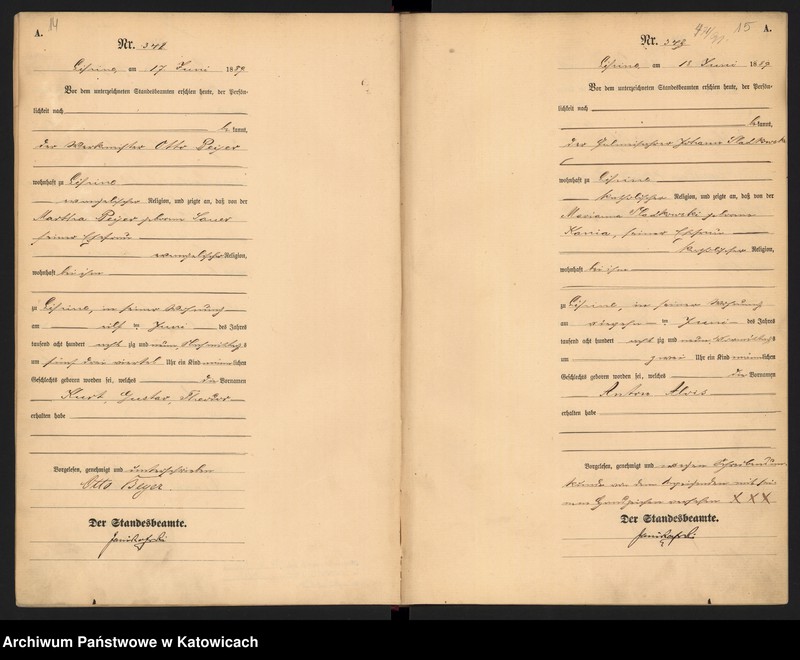 14
A.
Nr. 342
am 17 Juni 1889
Vor dem unterzeichneten Standesbeamten erschien heute, der Persön-
lichkeit nach
be kannt,
der Werkmeister Otto Beyer
wohnhaft zu
evangelischer Religion, und zeigte an, daß von der
Martha Beyer geborne Lauer
seiner Ehefrau
evangelischer Religion,
wohnhaft bei ihm
zu in seiner Wohnung
am elf ten Juni des Jahres
tausend acht hundert acht zig und neun, Nachmittags
um fünf drei viertel Uhr ein Kind männlichen
Geschlechts geboren worden sei, welches die Vornamen
Kurt, Gustav, Theodor
erhalten habe
Vorgelesen, genehmigt und unterschrieben
Otto Beyer.
Der Standesbeamte.
15
A.
Nr. 343
am 18 Juni 1889
Vor dem unterzeichneten Standesbeamten erschien heute, der Persön-
lichkeit nach
be kannt,
der Johann
wohnhaft zu
katholischer Religion, und zeigte an, daß von der
Marianna geborne
Kania, seiner Ehefrau
katholischer Religion,
wohnhaft bei ihm
zu in seiner Wohnung
am Juni des Jahres
tausend acht hundert acht zig und neun, Vormittags
um zwei Uhr ein Kind männlichen
Geschlechts geboren worden sei, welches die Vornamen
Anton Alois
erhalten habe
Vorgelesen, genehmigt und wegen Schreibensun-
kunde von dem Anzeigenden mit sei-
nem Handzeichen versehen XXX
Der Standesbeamte.
Archiwum Państwowe w Katowicach